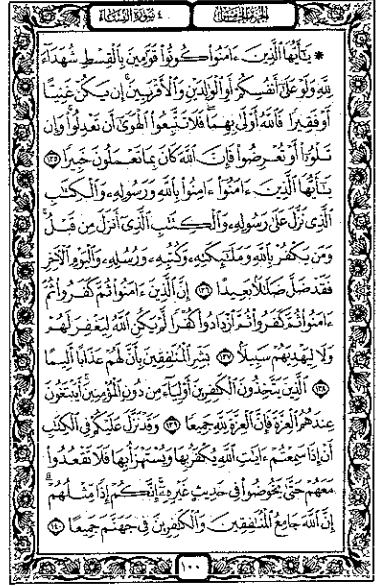 الجزء الخامس ٤ سورة النساء
* يَـٰٓأَيُّهَا ٱلَّذِينَ ءَامَنُوا۟ كُونُوا۟ قَوَّٰمِينَ بِٱلْقِسْطِ شُهَدَآءَ
لِلَّهِ وَلَوْ عَلَىٰٓ أَنفُسِكُمْ أَوِ ٱلْوَٰلِدَيْنِ وَٱلْأَقْرَبِينَ إِن يَكُنْ غَنِيًّا
أَوْ فَقِيرًا فَٱللَّهُ أَوْلَىٰ بِهِمَا فَلَا تَتَّبِعُوا۟ ٱلْهَوَىٰٓ أَن تَعْدِلُوا۟ وَإِن
تَلْوُۥٓا۟ أَوْ تُعْرِضُوا۟ فَإِنَّ ٱللَّهَ كَانَ بِمَا تَعْمَلُونَ خَبِيرًا ١٣٥
يَـٰٓأَيُّهَا ٱلَّذِينَ ءَامَنُوٓا۟ ءَامِنُوا۟ بِٱللَّهِ وَرَسُولِهِۦ وَٱلْكِتَـٰبِ
ٱلَّذِى نَزَّلَ عَلَىٰ رَسُولِهِۦ وَٱلْكِتَـٰبِ ٱلَّذِىٓ أَنزَلَ مِن قَبْلُ
وَمَن يَكْفُرْ بِٱللَّهِ وَمَلَـٰٓئِكَتِهِۦ وَكُتُبِهِۦ وَرُسُلِهِۦ وَٱلْيَوْمِ ٱلْـَٔاخِرِ
فَقَدْ ضَلَّ ضَلَـٰلًۢا بَعِيدًا ١٣٦ إِنَّ ٱلَّذِينَ ءَامَنُوا۟ ثُمَّ كَفَرُوا۟ ثُمَّ
ءَامَنُوا۟ ثُمَّ كَفَرُوا۟ ثُمَّ ٱزْدَادُوا۟ كُفْرًا لَّمْ يَكُنِ ٱللَّهُ لِيَغْفِرَ لَهُمْ
وَلَا لِيَهْدِيَهُمْ سَبِيلًۢا ١٣٧ بَشِّرِ ٱلْمُنَـٰفِقِينَ بِأَنَّ لَهُمْ عَذَابًا أَلِيمًا
١٣٨ ٱلَّذِينَ يَتَّخِذُونَ ٱلْكَـٰفِرِينَ أَوْلِيَآءَ مِن دُونِ ٱلْمُؤْمِنِينَ أَيَبْتَغُونَ
عِندَهُمُ ٱلْعِزَّةَ فَإِنَّ ٱلْعِزَّةَ لِلَّهِ جَمِيعًا ١٣٩ وَقَدْ نَزَّلَ عَلَيْكُمْ فِى ٱلْكِتَـٰبِ
أَنْ إِذَا سَمِعْتُمْ ءَايَـٰتِ ٱللَّهِ يُكْفَرُ بِهَا وَيُسْتَهْزَأُ بِهَا فَلَا تَقْعُدُوا۟
مَعَهُمْ حَتَّىٰ يَخُوضُوا۟ فِى حَدِيثٍ غَيْرِهِۦٓ إِنَّكُمْ إِذًا مِّثْلُهُمْ
إِنَّ ٱللَّهَ جَامِعُ ٱلْمُنَـٰفِقِينَ وَٱلْكَـٰفِرِينَ فِى جَهَنَّمَ جَمِيعًا ١٤٠
١٠٠